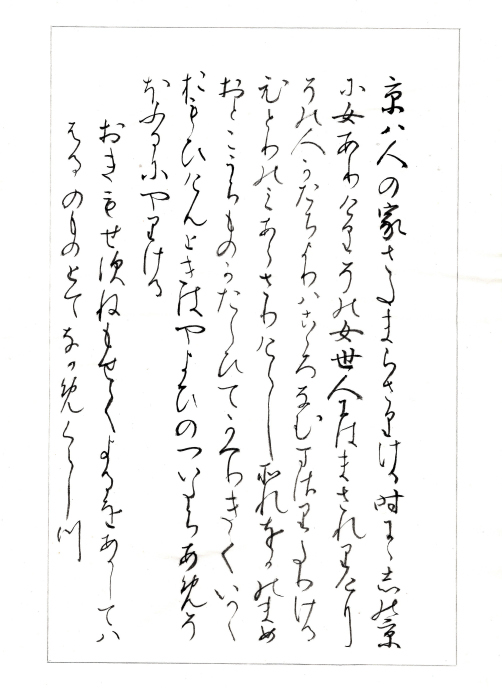 京ハ人の家さたまらさりける時にゝしの京
に女ありけりその女世人にはまされりけり
その人かたちよりハこころなむまさりたりける
ひとりのみあらさりけらしそれをかのまめ
おとこうちものかたらひてかへりきていかゝ
おもひけんときはやよひのついたちあめそ
ほふるにやりける
おきもせすねもせてよるをあかしてハ
はるのものとてなかめくらしつ